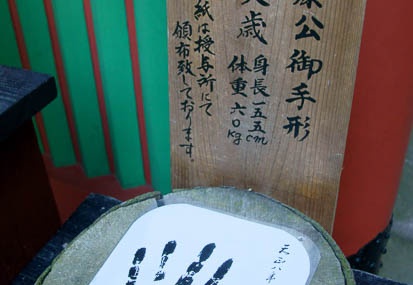 公御手形
歳 身長一五五cm
体重六〇kg
紙は授与所にて
頒布致しております。
天正八年